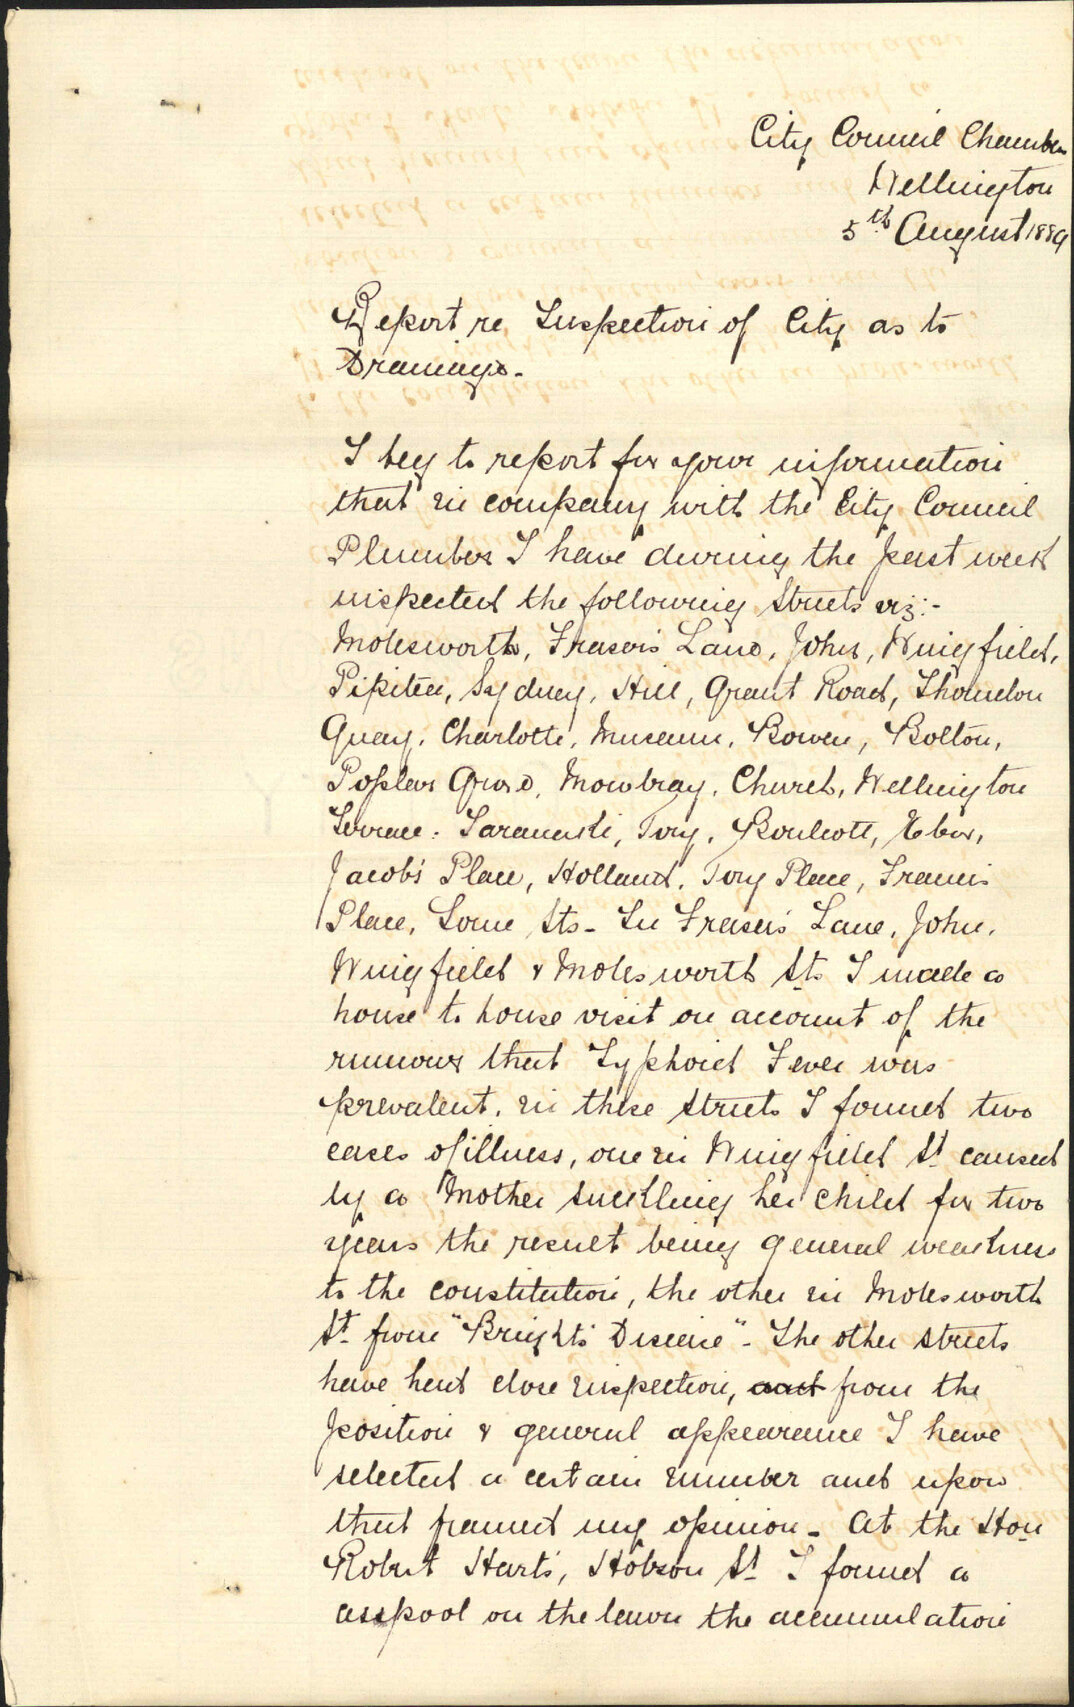 City Council Chamber
Wellington
5th August 1889
Report re Inspection of City as to
Drainage.
I beg to report for your information
that in company with the City Council
Plumber I have during the past week
inspected the following Streets viz:-
Molesworth, Fraser's Lane, John, Wingfield,
Pipitea, Sydney, Hill, Grant Road, Thorndon
Quay, Charlotte, Museum, Bowen, Bolton,
Poplar Grove, Mowbray, Church, Wellington
Terrace. Taranaki, Tory, Boulcott, Ebor,
Jacob's Place, Holland, Tory Place, Francis
Place, Lorne Sts - In Fraser's Lane, John,
Wingfield & Molesworth Sts I made a
house to house visit on account of the
rumour that Typhoid Fever was
prevalent. in these Streets I found two
cases of illness, one in Wingfield St caused
by a Mother suckling her child for two
years the result being general weakness
to the constitution, the other in Molesworth
St from "Brights Disease" - The other streets
have had close inspection, and from the
position & general appearance I have
selected a certain number and upon
that framed my opinion - At the Hon
Robert Hart's, Hobson St I found a
cesspool on the lawn the accumulation